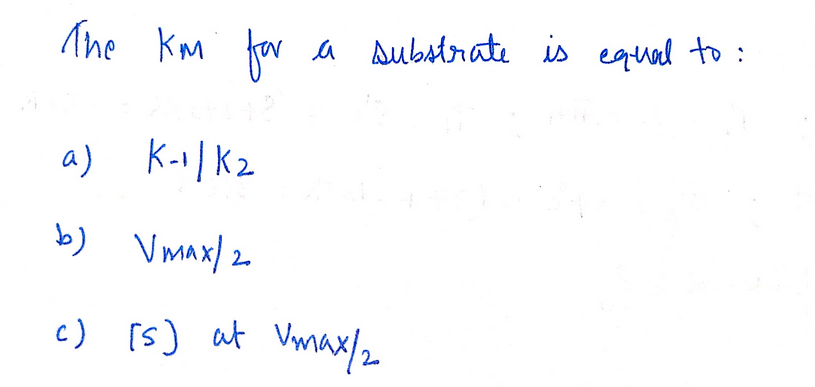 The KM for a substrate is equal to:
a) K-1/K2
b) Vmax/2
c) [S] at Vmax/2